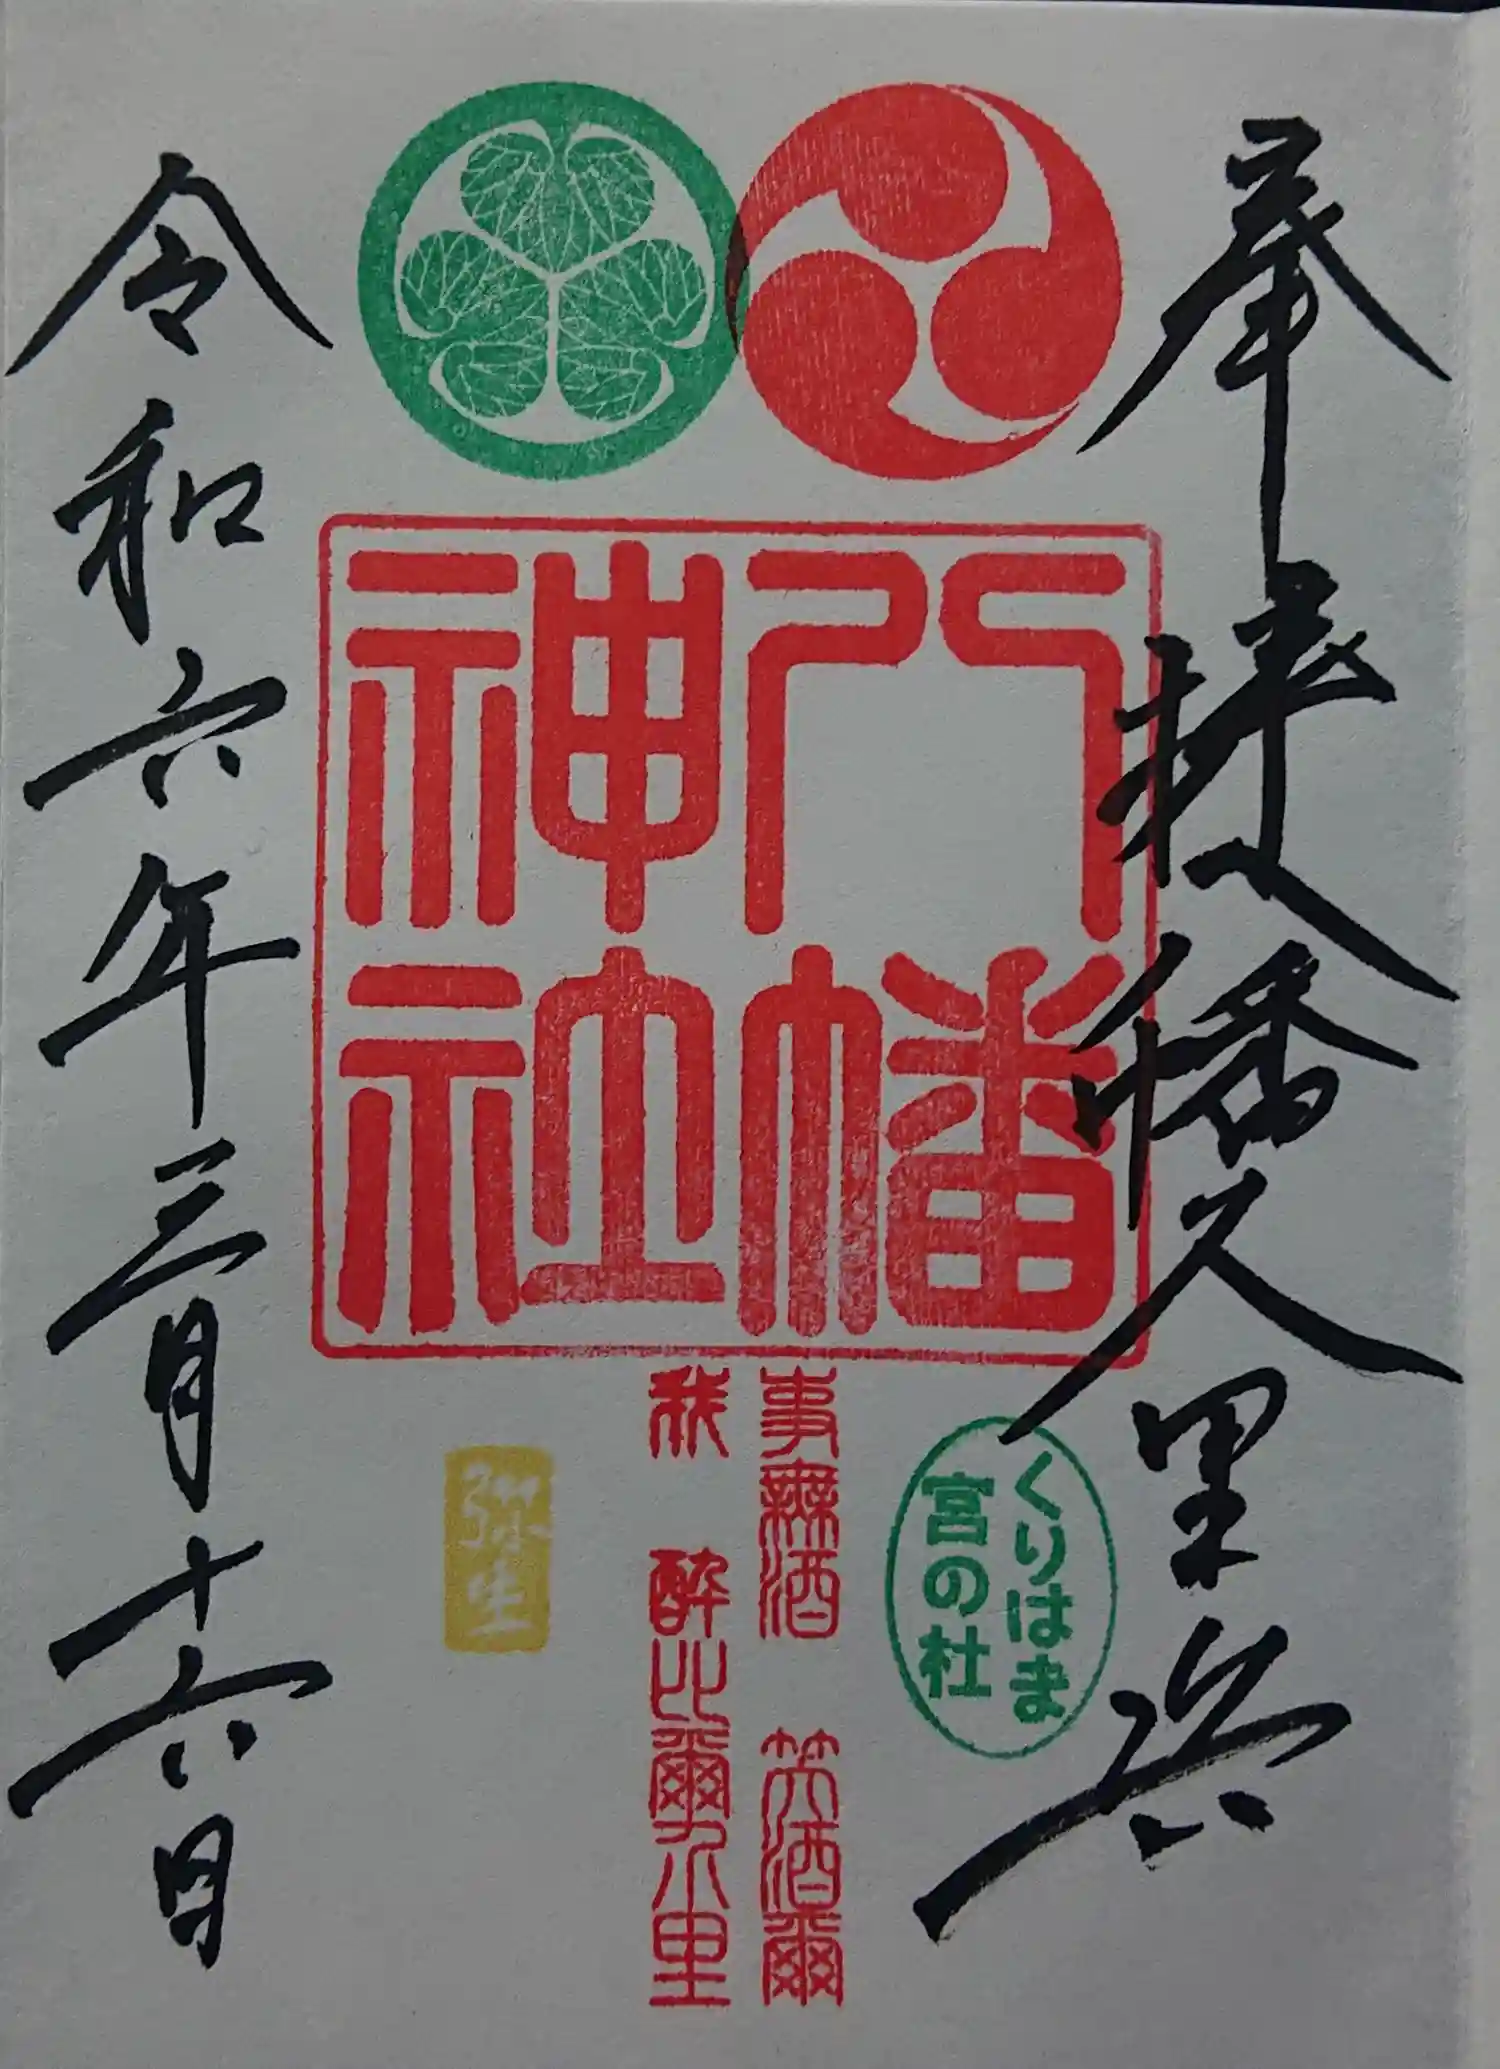 奉拝
幡久里浜
八幡
神社
くりはま
宮の杜
事無酒 笑酒爾
我 酔比爾久里
弥生
令和六年三月十六日